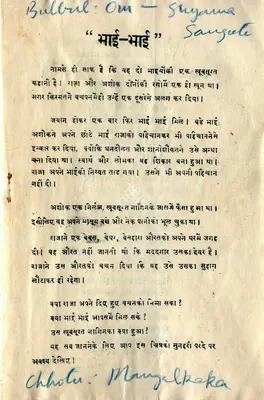 Bulbul: Om - Shyama
Sangeeta
" भाई-भाई "
नामसे ही साफ है कि यह दो भाइयोंकी एक खूबसूरत
कहानी है। राजा और अशोक दोनोंकी रगोंमें एक ही खून था।
मगर किस्मतने बचपनमेंही उन्हें एक दूसरेसे अलग कर दिया।
जवान होकर एक बार फिर भाई भाई मिले। बड़े भाई
अशोकने अपने छोटे भाई राजाको पहिचानकर भी पहिचाननेसे
इन्कार कर दिया, क्योंकि धनदौलत और शानोशौकतने उसे अन्धा
बना दिया था। स्वार्थ और लोभका वह शिकार बना हुआ था।
राजा अपने भाईकी नियत ताड़ गया। उसने भी अपनी पहिचान
नहीं दी।
अशोक एक निर्लज्ज, खूबसूरत नागिनके जालमें फँसा हुआ था।
इसीलिए वह अपने मासूम बच्चे और नेक पत्नीको भूल चुका था।
राजाने एक बेबस, बेघर, बेसहारा औरतको अपने घरमें जगह
दी। वह औरत नहीं जानती थी कि मददगार उसका देवर है।
राजाने उस औरतको वचन दिया कि वह उसे उसका सुहाग
लौटाकर ही रहेगा।
क्या राजा अपने दिए हुए वचनको निभा सका?
क्या भाई भाई आपसमें मिल सके?
उस खूबसूरत नागिनका क्या हुआ?
यह सब जाननेके लिए आप इस चित्रको सुनहरी परदे पर
अवश्य देखिए!
Chhotu: Mangalkaka